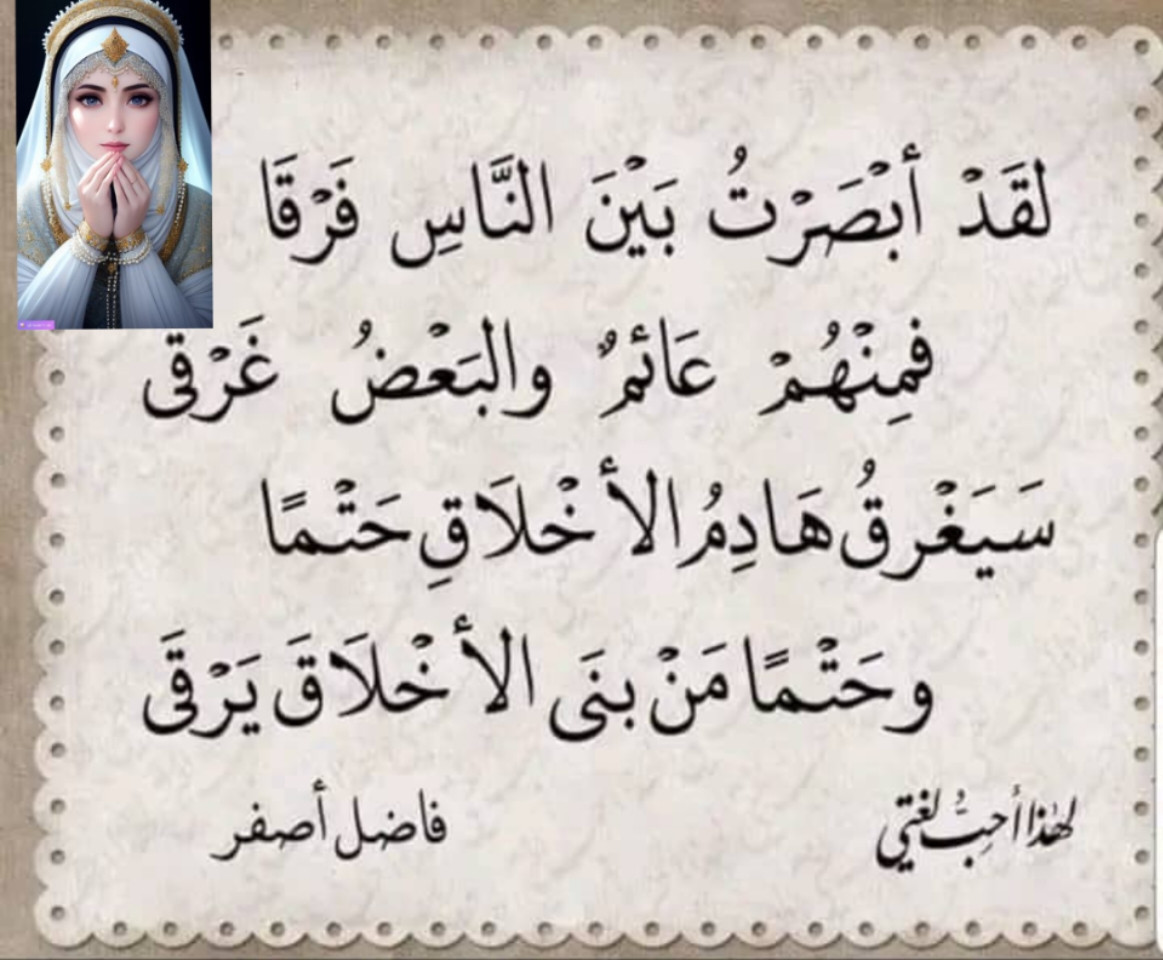 لقَدْ أبْصَرْتُ بَيْنَ النَّاسِ فَرْقَا
فمِنْهُمْ عَائمٌ والبَعْضُ غَرْقَى
سَيَغْرقُ هَادِمُ الأخْلَاقِ حَتْمًا
وحَتْمًا مَنْ بنَى الأخْلَاقَ يَرْقَى
لهٰذا أحِبُّ لغتي
فاضل أصفر